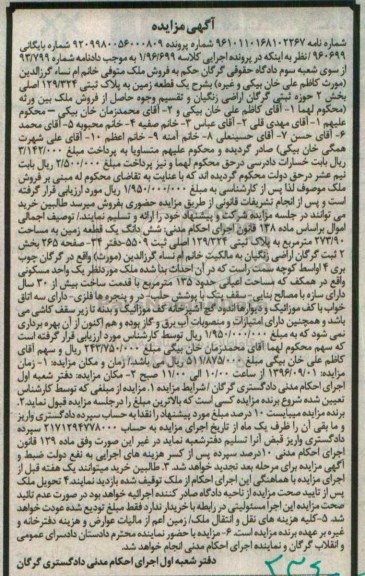 آگهی مزایده
شماره نامه ۹۶۱۰۱۱۰۱۶۸۱۰۲۲۶۷ شماره پرونده ۹۲۰۹۹۸۰۰۵۶۰۰۰۸۰۹ شماره بایگانی
۹۶۰۶۹۹ / نظر به اینکه در پرونده اجرایی کلاسه ۱/۹۶/۶۹۹ به موجب دادنامه شماره ۹۳/۷۹۹
از سوی شعبه سوم دادگاه حقوقی گرگان حکم به فروش ملک متوفی خانم ام نساء گرزالدین
(مورث کاظم علی خان بیکی و غیره) بشرح یک قطعه زمین به پلاک ثبتی ۱۲۹/۳۲۴ اصلی
بخش ۲ حوزه ثبتی گرگان اراضی زنگیان و تقسیم وجوه حاصل از فروش ملک بین ورثه
(محکوم لهما ۱- آقای کاظم علی خان بیکی و ۲- آقای محمدزمان خان بیکی – محکوم
علیهم ۱- آقای مهدی قلی ۲- آقای عباس ۳- خانم صفیه ۴- خانم محبوبه ۵- آقای محمد
۶- آقای حسن ۷- آقای حسینعلی ۸- خانم آمنه ۹- خانم اعظم ۱۰- آقای علی شهرت
همگی خان بیکی) صادر گردیده و محکوم علیهم متساویا به پرداخت مبلغ ۳/۱۴۲/۰۰۰
ریال بابت خسارات دادرسی درحق محکوم لهما و نیز پرداخت مبلغ ۲/۵۰۰/۰۰۰ ریال بابت
نیم عشر درحق دولت محکوم گردیده اند که با عنایت به تقاضای محکوم له مبنی بر فروش
ملک موصوف لذا پس از کارشناسی به مبلغ ۱/۹۵۰/۰۰۰/۰۰۰ ریال مورد ارزیابی قرار گرفته
است و پس از انجام تشریفات قانونی از طریق مزایده حضوری بفروش میرسد طالبین خرید
می توانند در جلسه مزایده شرکت و پیشنهاد خود را ارائه و تسلیم نمایند./ توصیف اجمالی
اموال براساس ماده ۱۳۸ قانون اجرای احکام مدنی: شش دانگ یک قطعه زمین به مساحت
۲۷۳/۹۰ مترمربع به پلاک ثبتی ۱۲۹/۳۲۴ اصلی ثبت ۵۵۰۹-دفتر ۳۴- صفحه ۲۶۵ بخش
۲ ثبت گرگان اراضی زنگیان به مالکیت خانم ام نساء گرزالدین (مورث) واقع در گرگان چوب
بری ۴ اواسط کوچه سمت راست که در آن احداث بنا شده ملک موردنظر یک واحد مسکونی
واقع در همکف که مساحت اعیانی حدود ۱۳۵ مترمربع با قدمت ساخت بیش از ۳۰ سال
دارای سازه با مصالح بنایی – سقف پتک با پوشش حلب – در و پنجره ها فلزی – دارای سه اتاق
خواب با کف موزائیک و دیوارها اندود گچ-آشپزخانه کف موزائیک و بدنه تا زیر سقف کاشی می
باشد و همچنین دارای امتیازات و منصوبات آب برق و گاز بوده و هم اکنون از آن بهره برداری
نمی شود که به مبلغ ۱/۹۵۰/۰۰۰/۰۰۰ ریال توسط کارشناس مورد ارزیابی قرار گرفته است
که سهم محکوم لهما آقای محمدزمان خان بیکی مبلغ ۲۴۳/۷۵۰/۰۰۰ ریال و سهم آقای
کاظم علی خان بیکی مبلغ ۵۱۱/۸۷۵/۰۰۰ ریال می باشد./ زمان و مکان مزایده: ۱- زمان
مزایده: ۱۳۹۶/۰۹/۰۱ از ساعت ۱۰/۰۰ الی ۱۱/۰۰ صبح ۲- مکان مزایده: دفتر شعبه اول
اجرای احکام مدنی دادگستری گرگان / شرایط مزایده: ۱. مزایده از مبلغی که توسط کارشناس
تعیین شده شروع برنده مزایده کسی است که بالاترین مبلغ را درجلسه مزایده قبول نماید. ۲.
برنده مزایده میبایست ۱۰ درصد مبلغ مورد پیشنهاد را نقدا به حساب سپرده دادگستری واریز
و ما بقی آن را ظرف یک ماه از تاریخ اجرای مزایده به حساب ۲۱۷۱۲۹۴۷۷۸۰۰۰ سپرده
دادگستری واریز قبض آنرا تسلیم دفترشعبه نماید در غیر این صورت وفق ماده ۱۲۹ قانون
اجرای احکام مدنی ۱۰درصد سپرده پس از کسر هزینه های اجرایی به نفع دولت ضبط و
آگهی مزایده برای مرحله بعد تجدید خواهد شد. ۳. طالبین خرید میتوانند یک هفته قبل از
اجرای مزایده با هماهنگی این اجرای احکام از ملک توقیف شده بازدید نمایند. ۴ تحویل ملک
پس از تایید صحت مزایده از ناحیه دادگاه صادر کننده اجرائیه خواهد بود در صورت عدم تائید
صحت مزایده این اجرا مسئولیتی در رابطه با خریدار ندارد فقط مبلغ تودیع شده عودت خواهد
شد. ۵-کلیه هزینه های نقل و انتقال ملک/ زمین اعم از مالیات عوارض و هزینه دفترخانه و
غیره بر عهده برنده مزایده است. ۶- مزایده با حضور نماینده محترم دادستان دادسرای عمومی
و انقلاب گرگان و نماینده اجرای احکام مدنی انجام خواهد شد.
دفتر شعبه اول اجرای احکام مدنی دادگستری گرگان